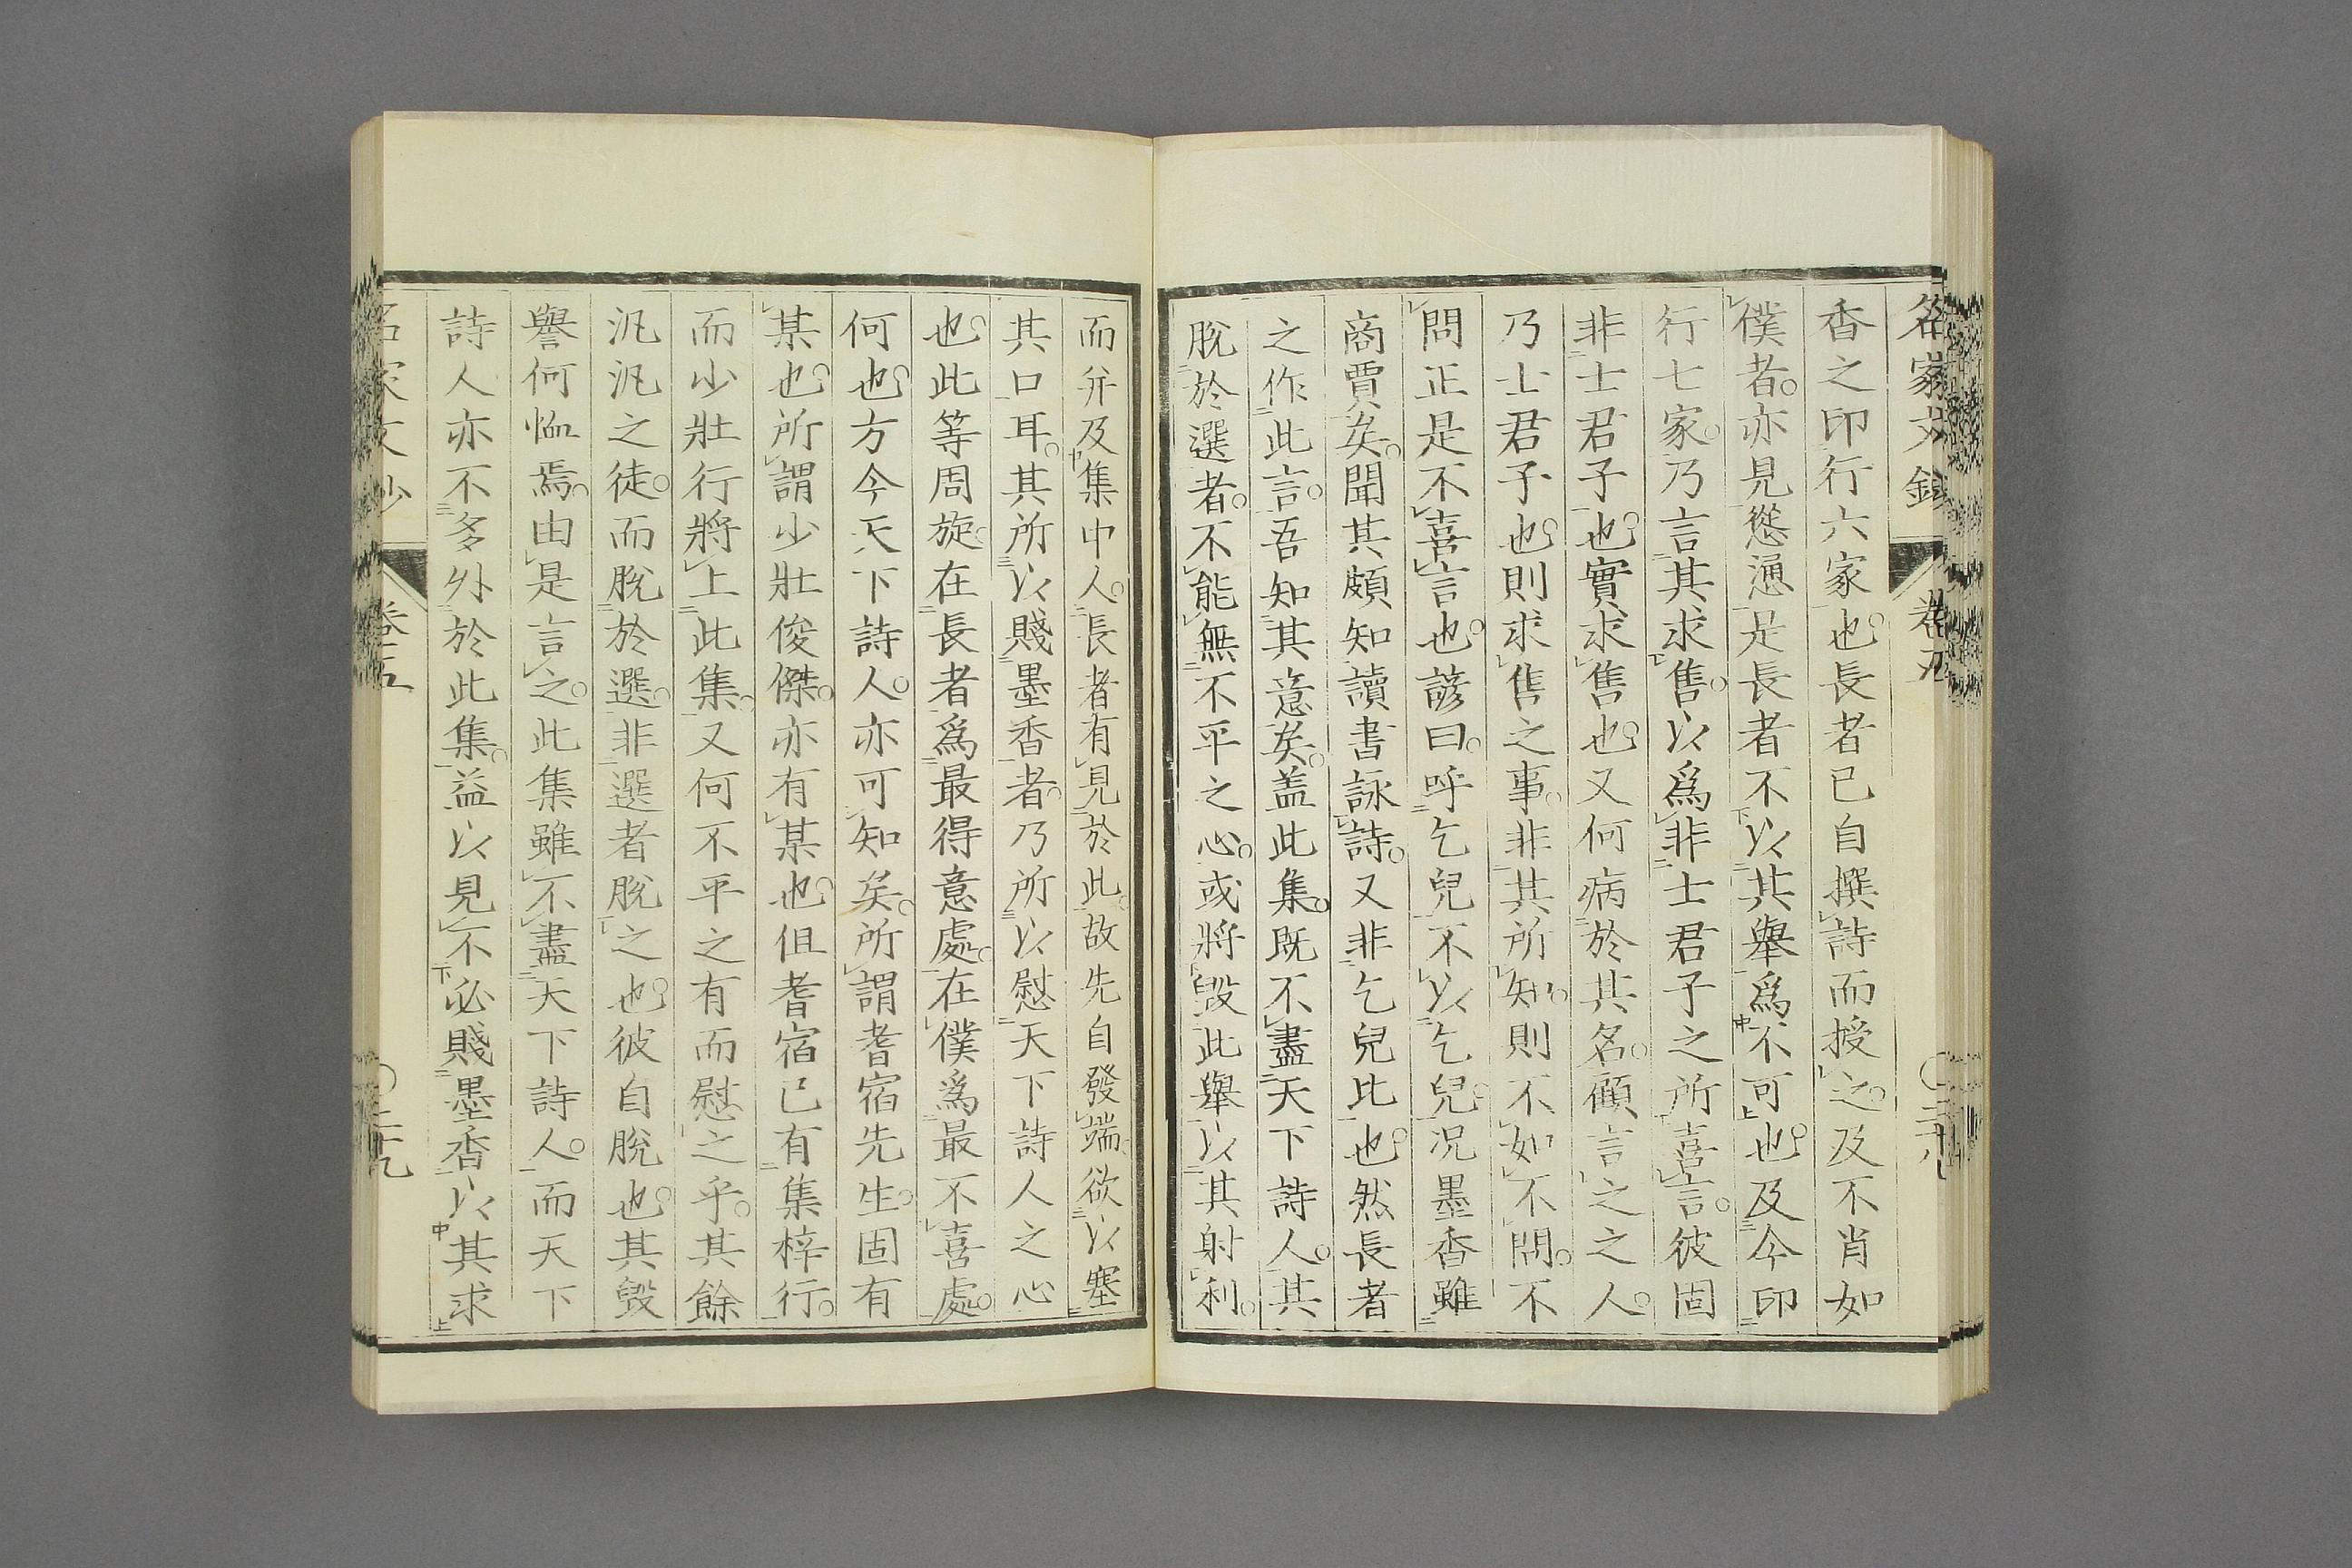 名家文鈔 卷五 ○二九
香之印行六家也長者已自撰詩而授之及不肖如
僕者亦見慫慂是長者不以其舉爲不可也及今印
行七家乃言其求售以爲非士君子之所喜言彼固
非士君子也實求售也又何病於其名顧言之之人
乃士君子也則求售之事非其所知則不如不問不
問正是不喜言也諺曰呼乞兒不以乞兒況墨香雖
商賈矣聞其頗知讀書詠詩又非乞兒比也然長者
之作此言吾知其意矣盖此集既不盡天下詩人其
脫於選者不能無不平之心或將毀此舉以其射利
而并及集中人長者有見於此故先自發端欲以塞
其口耳其所以賤墨香者乃所以慰天下詩人之心
也此等周旋在長者爲最得意處在僕爲最不喜處
何也方今天下詩人亦可知矣所謂耆宿先生固有
某也所謂少壯俊傑亦有某也但耆宿已有集梓行
而少壯行將上此集又何不平之有而慰之乎其餘
汎汎之徒而脫於選非選者脫之也彼自脫也其毀
譽何恤焉由是言之此集雖不盡天下詩人而天下
詩人亦不多外於此集益以見不必賤墨香以其求
名家文鈔 卷五 ○二九